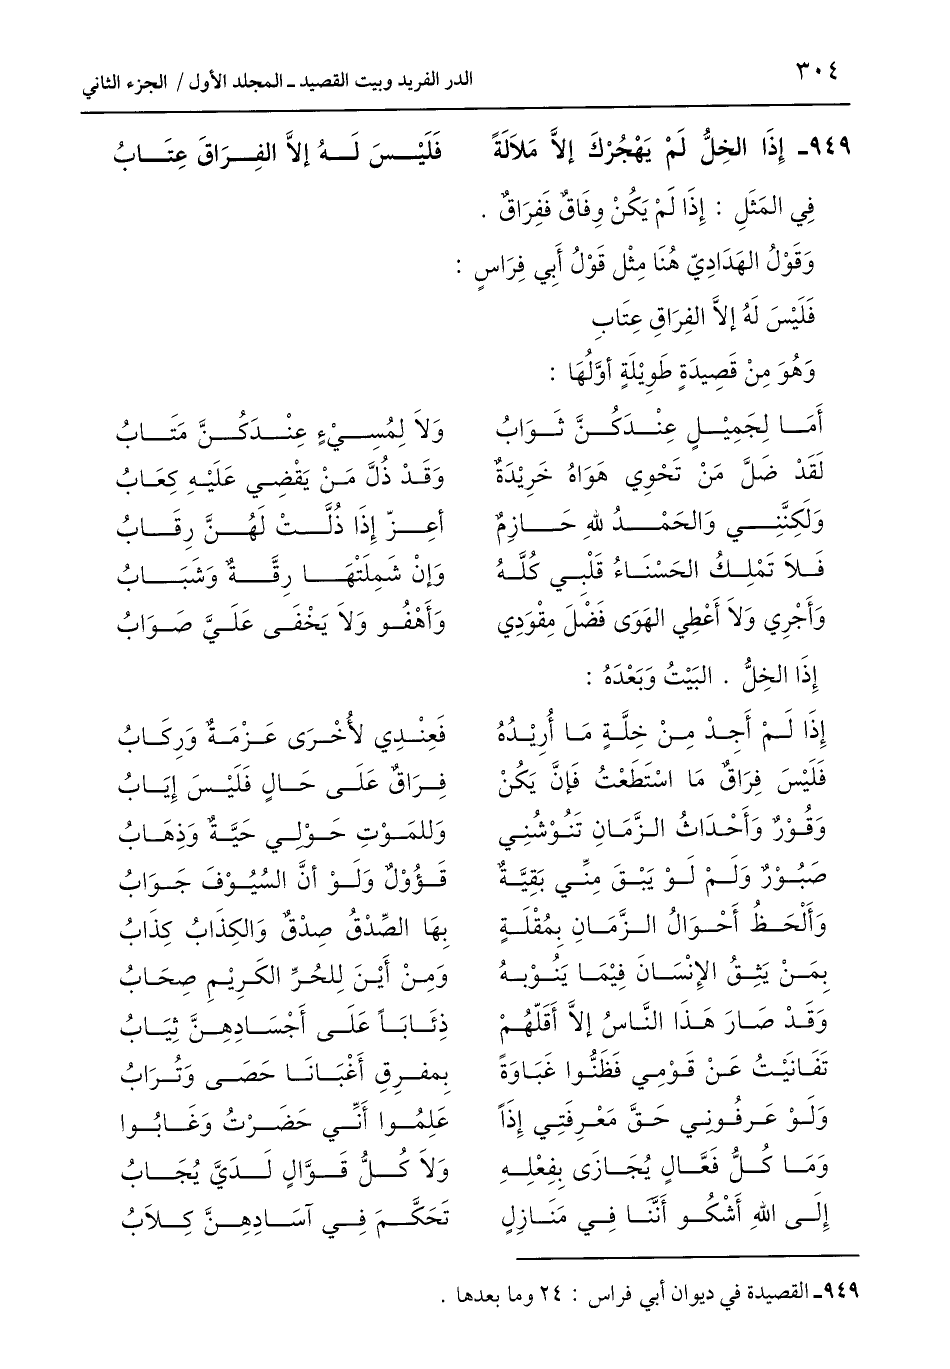 ٣٠٤ الدر الفريد وبيت القصيد ـ المجلد الأول / الجزء الثاني
٩٤٩ـ إِذَا الخِلُّ لَمْ يَهْجُرْكَ إلاَّ مَلاَلَةً فَلَيْسَ لَهُ إلاَّ الفِرَاقَ عِتَابُ
فِي المَثَلِ : إِذَا لَمْ يَكُنْ وِفَاقٌ فَفِرَاقٌ .
وَقَوْلُ الهَدَادِيّ هُنَا مِثْل قَوْلُ أَبِي فِرَاسٍ :
فَلَيْسَ لَهُ إلاَّ الفِرَاقِ عِتَاب
وَهُوَ مِنْ قَصِيدَةٍ طَوِيْلَةٍ أوَّلُهَا :
أَمَا لِجَمِيْلٍ عِنْدَكُنَّ ثَوَابُ وَلاَ لِمُسِيْءٍ عِنْدَكُنَّ مَتَابُ
لَقَدْ ضَلَّ مَنْ تَحْوِي هَوَاهُ خَرِيْدَةٌ وَقَدْ ذُلَّ مَنْ يَقْضِي عَلَيْهِ كِعَابُ
وَلَكِنَّنِي وَالحَمْدُ للهِ حَازِمٌ أعِزّ إذَا ذُلَّتْ لَهُنَّ رِقَابُ
فَلاَ تَمْلِكُ الحَسْنَاءُ قَلْبِي كُلَّهُ وَإنْ شَمِلَتْهَا رِقَّةٌ وَشَبَابُ
وَأجْرِي وَلاَ أُعْطِي الهَوَى فَضْلَ مِقْوَدِي وَأهْفُو وَلاَ يَخْفَى عَلَيَّ صَوَابُ
إِذَا الخِلُّ . البَيْتُ وَبَعْدَهُ :
إذَا لَمْ أجِدْ مِنْ خِلَّةٍ مَا أُرِيْدُهُ فَعِنْدِي لأُخْرَى عَزْمَةٌ وَرِكَابُ
فَلَيْسَ فِرَاقٌ مَا اسْتَطَعْتُ فَإنَّ يَكُنْ فِرَاقٌ عَلَى حَالٍ فَلَيْسَ إيَابُ
وَقُوْرٌ وَأحْدَاثُ الزَّمَانِ تَنُوْشُنِي وَلِلمَوْتِ حَوْلِي جَيَّةٌ وَذهَابُ
صَبُوْرٌ وَلَمْ لَوْ يَبْقَ مِنِّي بَقِيَّةٌ قَؤُوْلٌ وَلَوْ أنَّ السُّيُوْفَ جَوَابُ
وَألْحَظُ أحْوَالُ الزَّمَانِ بِمُقْلَةٍ بِهَا الصِّدْقُ صِدْقٌ وَالكِذَابُ كِذَابُ
بِمَنْ يَثِقُ الإنْسَانَ فِيْمَا يَنُوْبهُ وَمِنْ أيْنَ لِلحُرِّ الكَرِيْمِ صِحَابُ
وَقَدْ صَارَ هَذَا النَّاسُ إلاَّ أقَلَّهُمْ ذِئَابَاً عَلَى أجْسَادِهِنَّ ثِيَابُ
تَغَابَيْتُ عَنْ قَوْمِي فَظَنُّوا غَبَاوَةً بِمفرقِ أغْبَانَا حَصَى وَتُرَابُ
وَلَوْ عَرفُونِي حَقَّ مَعْرِفَتِي إِذَاً عَلِمُوا أنِّي حَضَرْتُ وَغَابُوا
وَمَا كُلُّ فَعَّالٍ يُجَازَى بِفِعْلِهِ وَلاَ كُلُّ قَوَّالٍ لَدَيَّ يُجَابُ
إلَى اللهِ أشْكُو أنَّنَا فِي مَنَازِلٍ تَحَكَّمَ فِي آسَادِهِنَّ كِلاَبُ
٩٤٩ـ القصيدة في ديوان أبي فراس : ٢٤ وما بعدها .